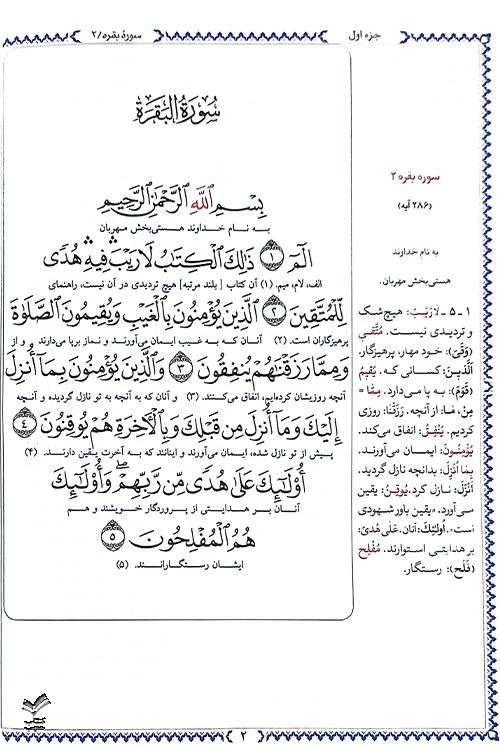 جزء اول
سورهٔ بقره/۲
سُورَةُ الْبَقَرَةِ
بِسْمِ اللَّهِ الرَّحْمَٰنِ الرَّحِيمِ
به نام خداوند هستی‌بخش مهربان
الٓمٓ ﴿١﴾ ذَٰلِكَ الْكِتَٰبُ لَا رَيْبَ ۛ فِيهِ ۛ هُدًى
الف، لام، میم. (۱) آن کتاب [بلند مرتبه] هیچ تردیدی در آن نیست، راهنمای
لِّلْمُتَّقِينَ ﴿٢﴾ الَّذِينَ يُؤْمِنُونَ بِالْغَيْبِ وَيُقِيمُونَ الصَّلَوٰةَ
پرهیزگاران است. (۲) آنان که به غیب ایمان می‌آورند و نماز برپا می‌دارند و از
وَمِمَّا رَزَقْنَٰهُمْ يُنفِقُونَ ﴿٣﴾ وَالَّذِينَ يُؤْمِنُونَ بِمَا أُنزِلَ
آنچه روزیشان کرده‌ایم، انفاق می‌کنند. (۳) و آنان که به آنچه به تو نازل گردیده و آنچه
إِلَيْكَ وَمَا أُنزِلَ مِن قَبْلِكَ وَبِالْآخِرَةِ هُمْ يُوقِنُونَ ﴿٤﴾
پیش از تو نازل شده، ایمان می‌آورند و اینانند که به آخرت یقین دارند. (۴)
أُولَٰئِكَ عَلَىٰ هُدًى مِّن رَّبِّهِمْ ۖ وَأُولَٰئِكَ
آنان بر هدایتی از پروردگار خویشند و هم
هُمُ الْمُفْلِحُونَ ﴿٥﴾
ایشان رستگارانند. (۵)
سوره بقره ۲
(۲۸۶ آیه)
به نام خداوند
هستی‌بخش مهربان.
۱ ـ ۵ ـ لَارَیْبَ: هیچ شک
و تردیدی نیست. مُتَّقِی
(وَقَیَ): خود مهار، پرهیزگار.
الَّذِینَ: کسانی که. یُقِیمُ
(قَوَمَ): به پا می‌دارد. مِمَّا =
مِنْ، مَا: از آنچه. رَزَقْنَا: روزی
کردیم. یُنْفِقُ: انفاق می‌کند.
یُؤْمِنُونَ: ایمان می‌آورند.
بِمَا أُنْزِلَ: بدانچه نازل گردید.
أَنْزَلَ: نازل کرد. یُوقِنُ: یقین
می‌آورد. «یقین باور شهودی
است». أُولَئِكَ: آنان. عَلَى هُدًى:
بر هدایتی استوارند. مُفْلِح
(فَلَحَ): رستگار.
۲